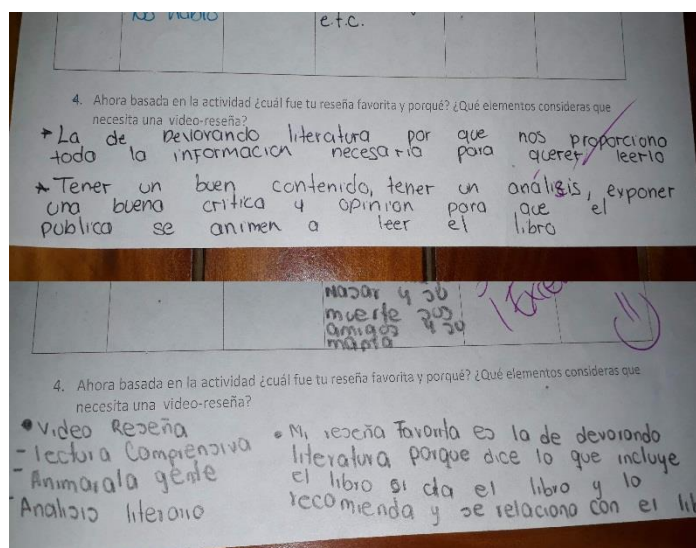 No hablo
e.t.c.
4. Ahora basada en la actividad ¿cuál fue tu reseña favorita y porqué? ¿Qué elementos consideras que
necesita una video-reseña?
La de Devorando literatura por que nos proporciono
toda la informacion necesaria para querer leerlo
Tener un buen contenido, tener un análisis, exponer
una buena critica y opinion para que el
publico se animen a leer el libro
muerte sus
amigos y su
4. Ahora basada en la actividad ¿cuál fue tu reseña favorita y porqué? ¿Qué elementos consideras que
necesita una video-reseña?
• Video Reseña
- lectura Comprensiva
- Animar a la gente
- Analisis literario
• Mi reseña Favorita es la de devorando
literatura porque dice lo que incluye
el libro si da el libro y lo
recomienda y se relaciona con el